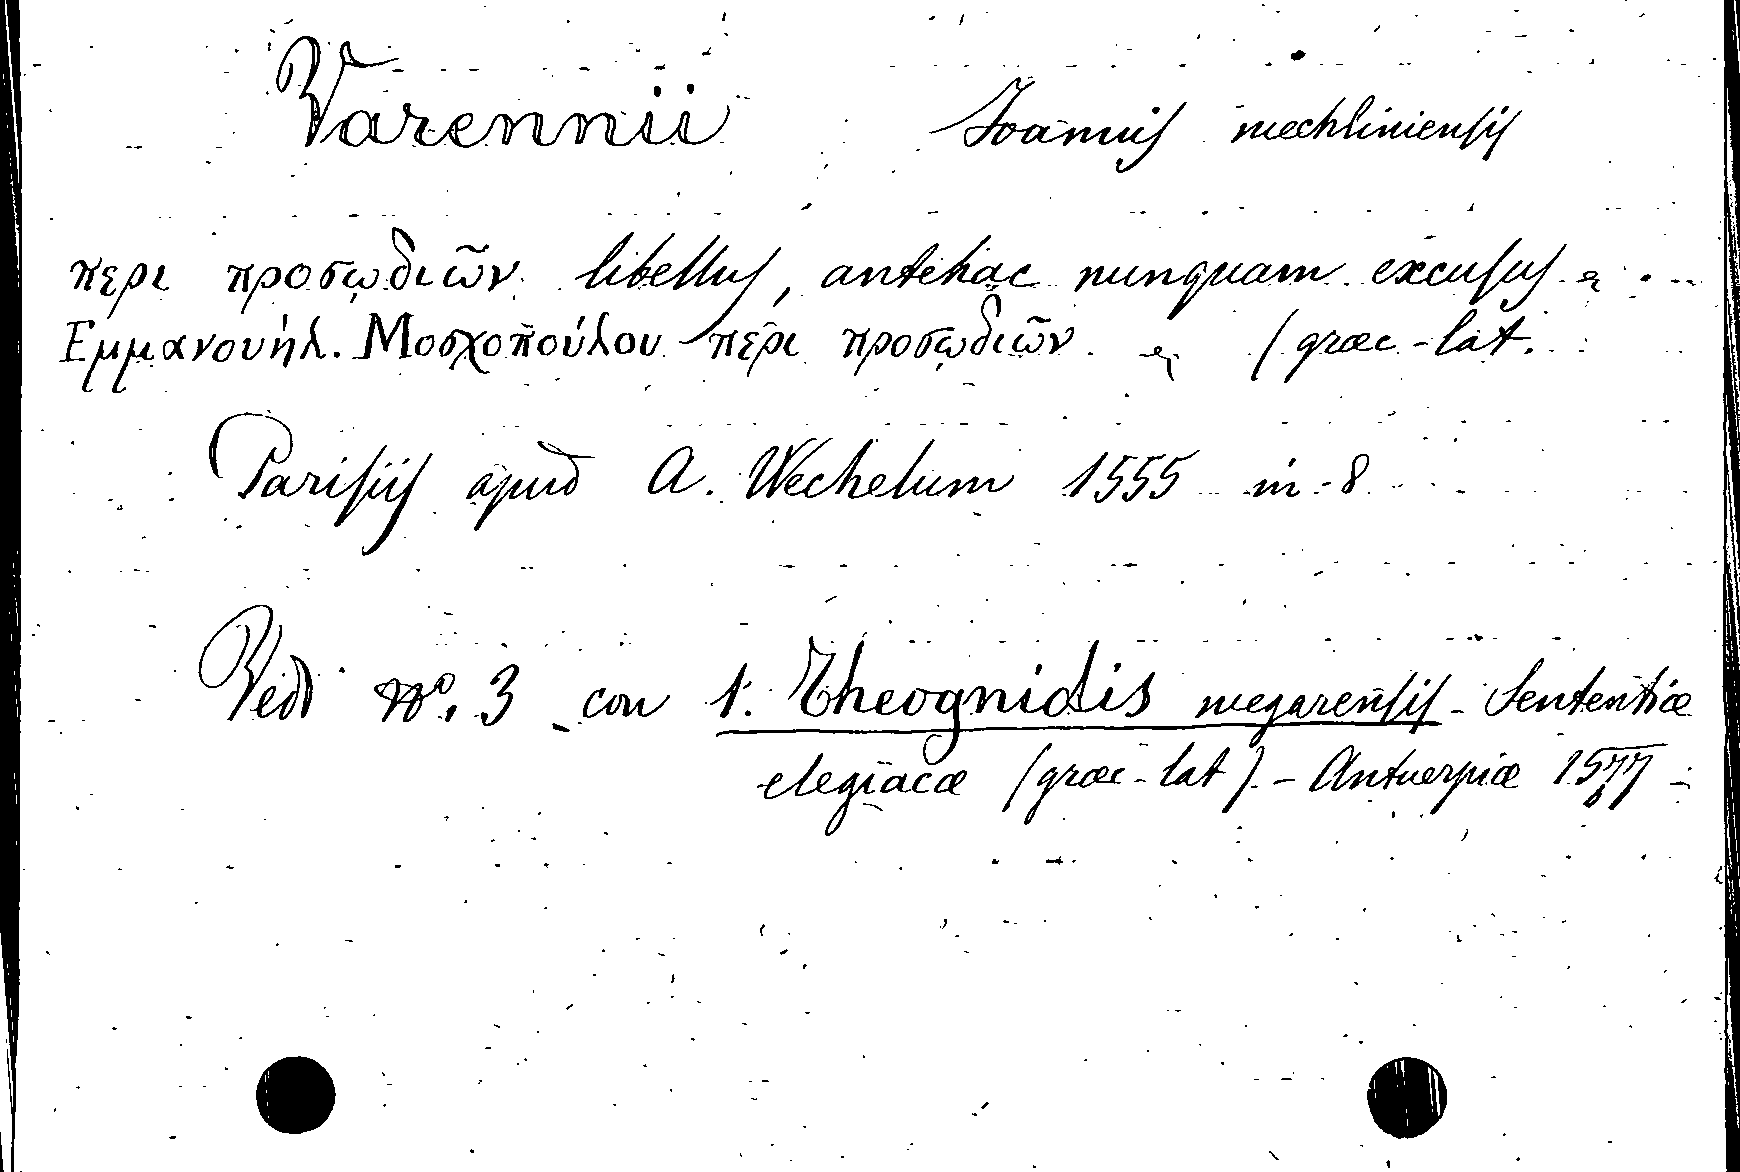 Varennii Ioannis mechliniensis
περι προσῳδιῶν libellus, antehac nunquam excusus.
Εμμανουήλ. Μοσχοπούλου περι προσῳδιῶν. (græc-lat.
Parisiis apud A. Wechelum 1555 in-8
Vedi No. 3 con 1. Theognidis megarensis - Sententiæ
elegiacæ (græc-lat). - Antuerpiæ 1577 -